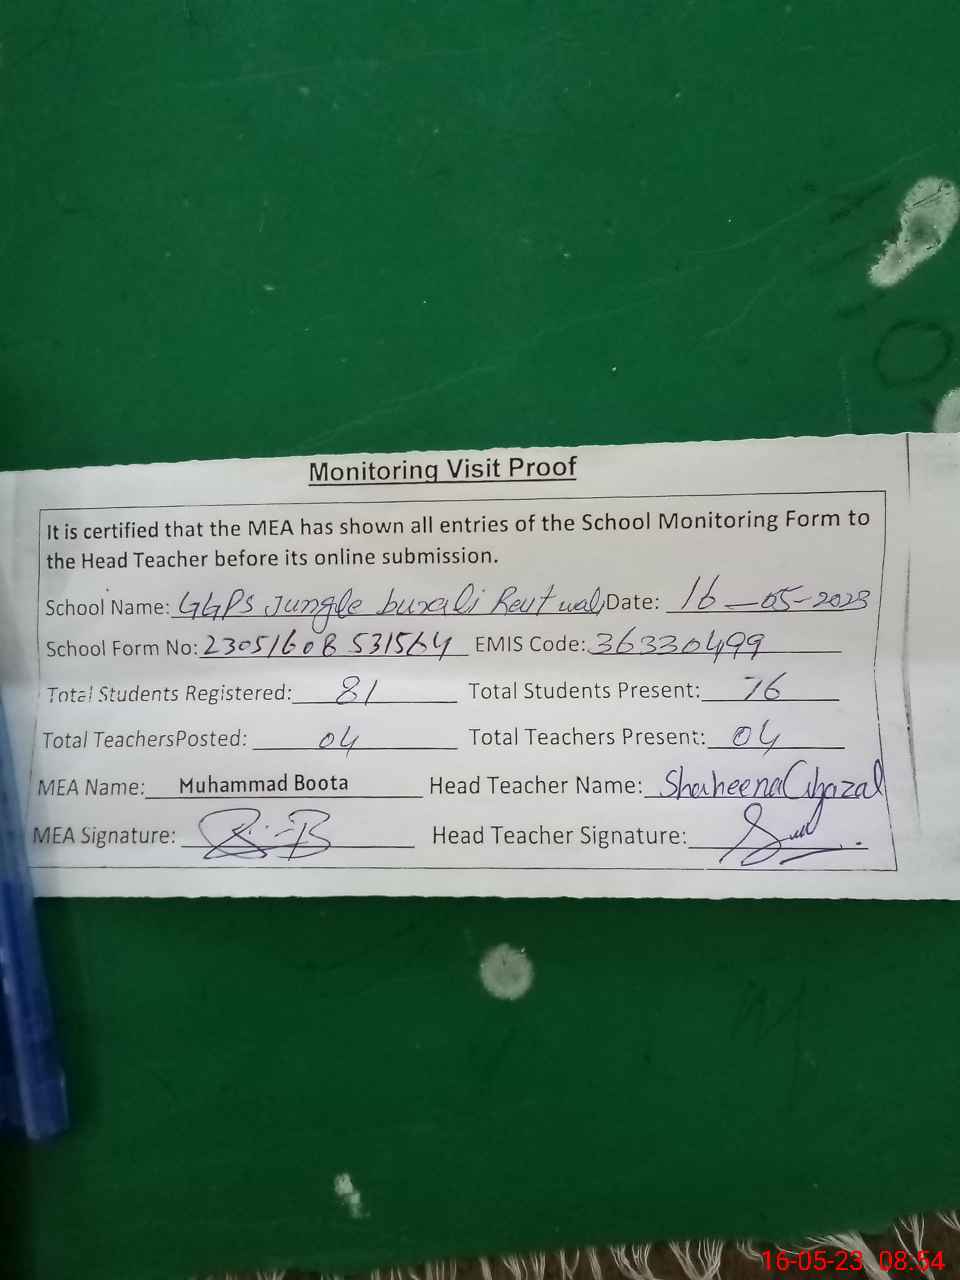 Monitoring Visit Proof
It is certified that the MEA has shown all entries of the School Monitoring Form to
the Head Teacher before its online submission.
School Name: GGPS Jungle burali Date: 16-05-2023
School Form No: 23051608531564 EMIS Code: 36330499
Total Students Registered: 81 Total Students Present: 76
Total TeachersPosted: 04 Total Teachers Present: 04
MEA Name: Muhammad Boota Head Teacher Name: Shaheena Ghazal
MEA Signature: Head Teacher Signature:
16-05-23 08:54